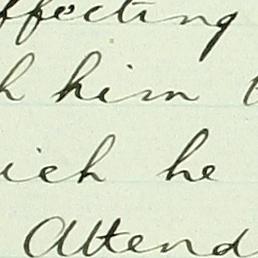 ffecting
h him
ich he
Attend